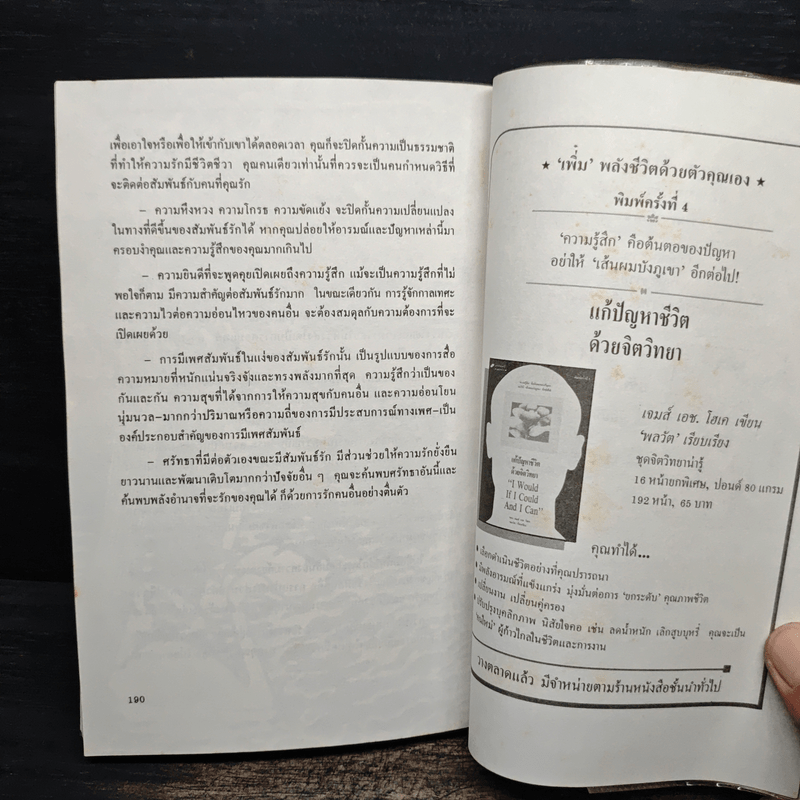 เพื่อเอาใจหรือเพื่อให้เข้ากับเขาได้ตลอดเวลา คุณก็จะปิดกั้นความเป็นธรรมชาติ
ที่ทำให้ความรักมีชีวิตชีวา คุณคนเดียวเท่านั้นที่ควรจะเป็นคนกำหนดวิธีที่
จะติดต่อสัมพันธ์กับคนที่คุณรัก
– ความหึงหวง ความโกรธ ความขัดแย้ง จะปิดกั้นความเปลี่ยนแปลง
ในทางที่ดีขึ้นของสัมพันธ์รักได้ หากคุณปล่อยให้อารมณ์และปัญหาเหล่านี้มา
ครอบงำคุณและความรู้สึกของคุณมากเกินไป
– ความยินดีที่จะพูดคุยเปิดเผยถึงความรู้สึก แม้จะเป็นความรู้สึกที่ไม่
พอใจก็ตาม มีความสำคัญต่อสัมพันธ์รักมาก ในขณะเดียวกัน การรู้จักกาลเทศะ
และความไวต่อความอ่อนไหวของคนอื่น จะต้องสมดุลกับความต้องการที่จะ
เปิดเผยด้วย
– การมีเพศสัมพันธ์ในแง่ของสัมพันธ์รักนั้น เป็นรูปแบบของการสื่อ
ความหมายที่หนักแน่นจริงจังและทรงพลังมากที่สุด ความรู้สึกว่าเป็นของ
กันและกัน ความสุขที่ได้จากการให้ความสุขกับคนอื่น และความอ่อนโยน
นุ่มนวล–มากกว่าปริมาณหรือความถี่ของการมีประสบการณ์ทางเพศ–เป็น
องค์ประกอบสำคัญของการมีเพศสัมพันธ์
– ศรัทธาที่มีต่อตัวเองขณะมีสัมพันธ์รัก มีส่วนช่วยให้ความรักยั่งยืน
ยาวนานและพัฒนาเติบโตมากกว่าปัจจัยอื่น ๆ คุณจะค้นพบศรัทธาอันนี้และ
ค้นพบพลังอำนาจที่จะรักของคุณได้ ก็ด้วยการรักคนอื่นอย่างตื่นตัว
190
★ 'เพิ่ม' พลังชีวิตด้วยตัวคุณเอง ★
พิมพ์ครั้งที่ 4
'ความรู้สึก' คือต้นตอของปัญหา
อย่าให้ 'เส้นผมบังภูเขา' อีกต่อไป!
แก้ปัญหาชีวิต
ด้วยจิตวิทยา
แก้ปัญหาชีวิต
ด้วยจิตวิทยา
"I Would
If I Could
And I Can"
เจมส์ เอช. โฮเค เขียน
'พลวัต' เรียบเรียง
ชุดจิตวิทยาน่ารู้
16 หน้ายกพิเศษ, ปอนด์ 80 แกรม
192 หน้า, 65 บาท
คุณทำได้...
• เลือกดำเนินชีวิตอย่างที่คุณปรารถนา
• มีพลังอารมณ์ที่แข็งแกร่ง มุ่งมั่นต่อการ 'ยกระดับ' คุณภาพชีวิต
• เปลี่ยนงาน เปลี่ยนคู่ครอง
• ปรับปรุงบุคลิกภาพ นิสัยใจคอ เช่น ลดน้ำหนัก เลิกสูบบุหรี่ คุณจะเป็น
'คนใหม่' ผู้ก้าวไกลในชีวิตและการงาน
วางตลาดแล้ว มีจำหน่ายตามร้านหนังสือชั้นนำทั่วไป